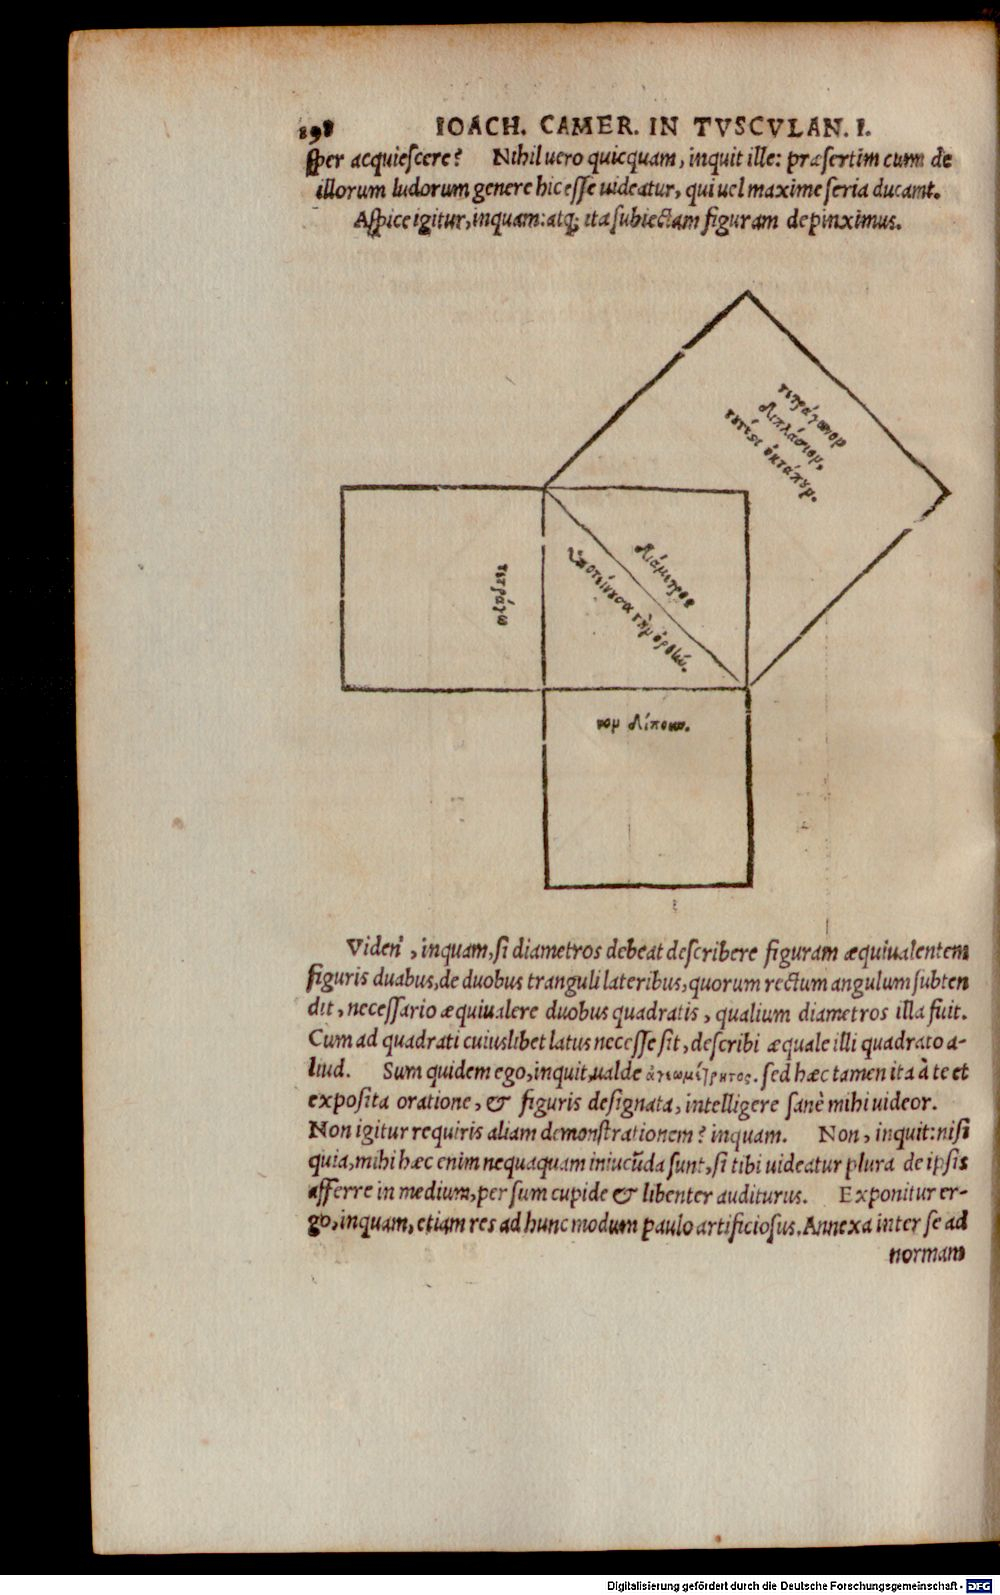 198 IOACH. CAMER. IN TVSCVLAN. I.
ſper acquieſcere? Nihil uero quicquam, inquit ille: præſertim cum de
illorum ludorum genere hic eſſe uideatur, qui uel maxime ſeria ducant.
Aſpice igitur, inquam: atq; ita ſubiectam figuram depinximus.
τετράγωνομ
διπλάσιομ,
τουτέστι ὀκτάπουμ.
διάμετρος
ὑποτείνουσα τὴμ ὀρθήμ.
τετράγω
νομ δίπουμ.
Viden', inquam, ſi diametros debeat deſcribere figuram æquiualentem
figuris duabus, de duobus tranguli lateribus, quorum rectum angulum ſubten
dit, neceſſario æquiualere duobus quadratis, qualium diametros illa fuit.
Cum ad quadrati cuiuslibet latus neceſſe ſit, deſcribi æquale illi quadrato a-
liud. Sum quidem ego, inquit, ualde ἀγεωμέτρητος. ſed hæc tamen ita à te et
expoſita oratione, & figuris deſignata, intelligere ſanè mihi uideor.
Non igitur requiris aliam demonſtrationem? inquam. Non, inquit: niſi
quia, mihi hæc enim nequaquam iniucūda ſunt, ſi tibi uideatur plura de ipſis
afferre in medium, per ſum cupide & libenter auditurus. Exponitur er-
go, inquam, etiam res ad hunc modum paulo artificioſus. Annexa inter ſe ad
normam
Digitalisierung gefördert durch die Deutsche Forschungsgemeinschaft - DFG